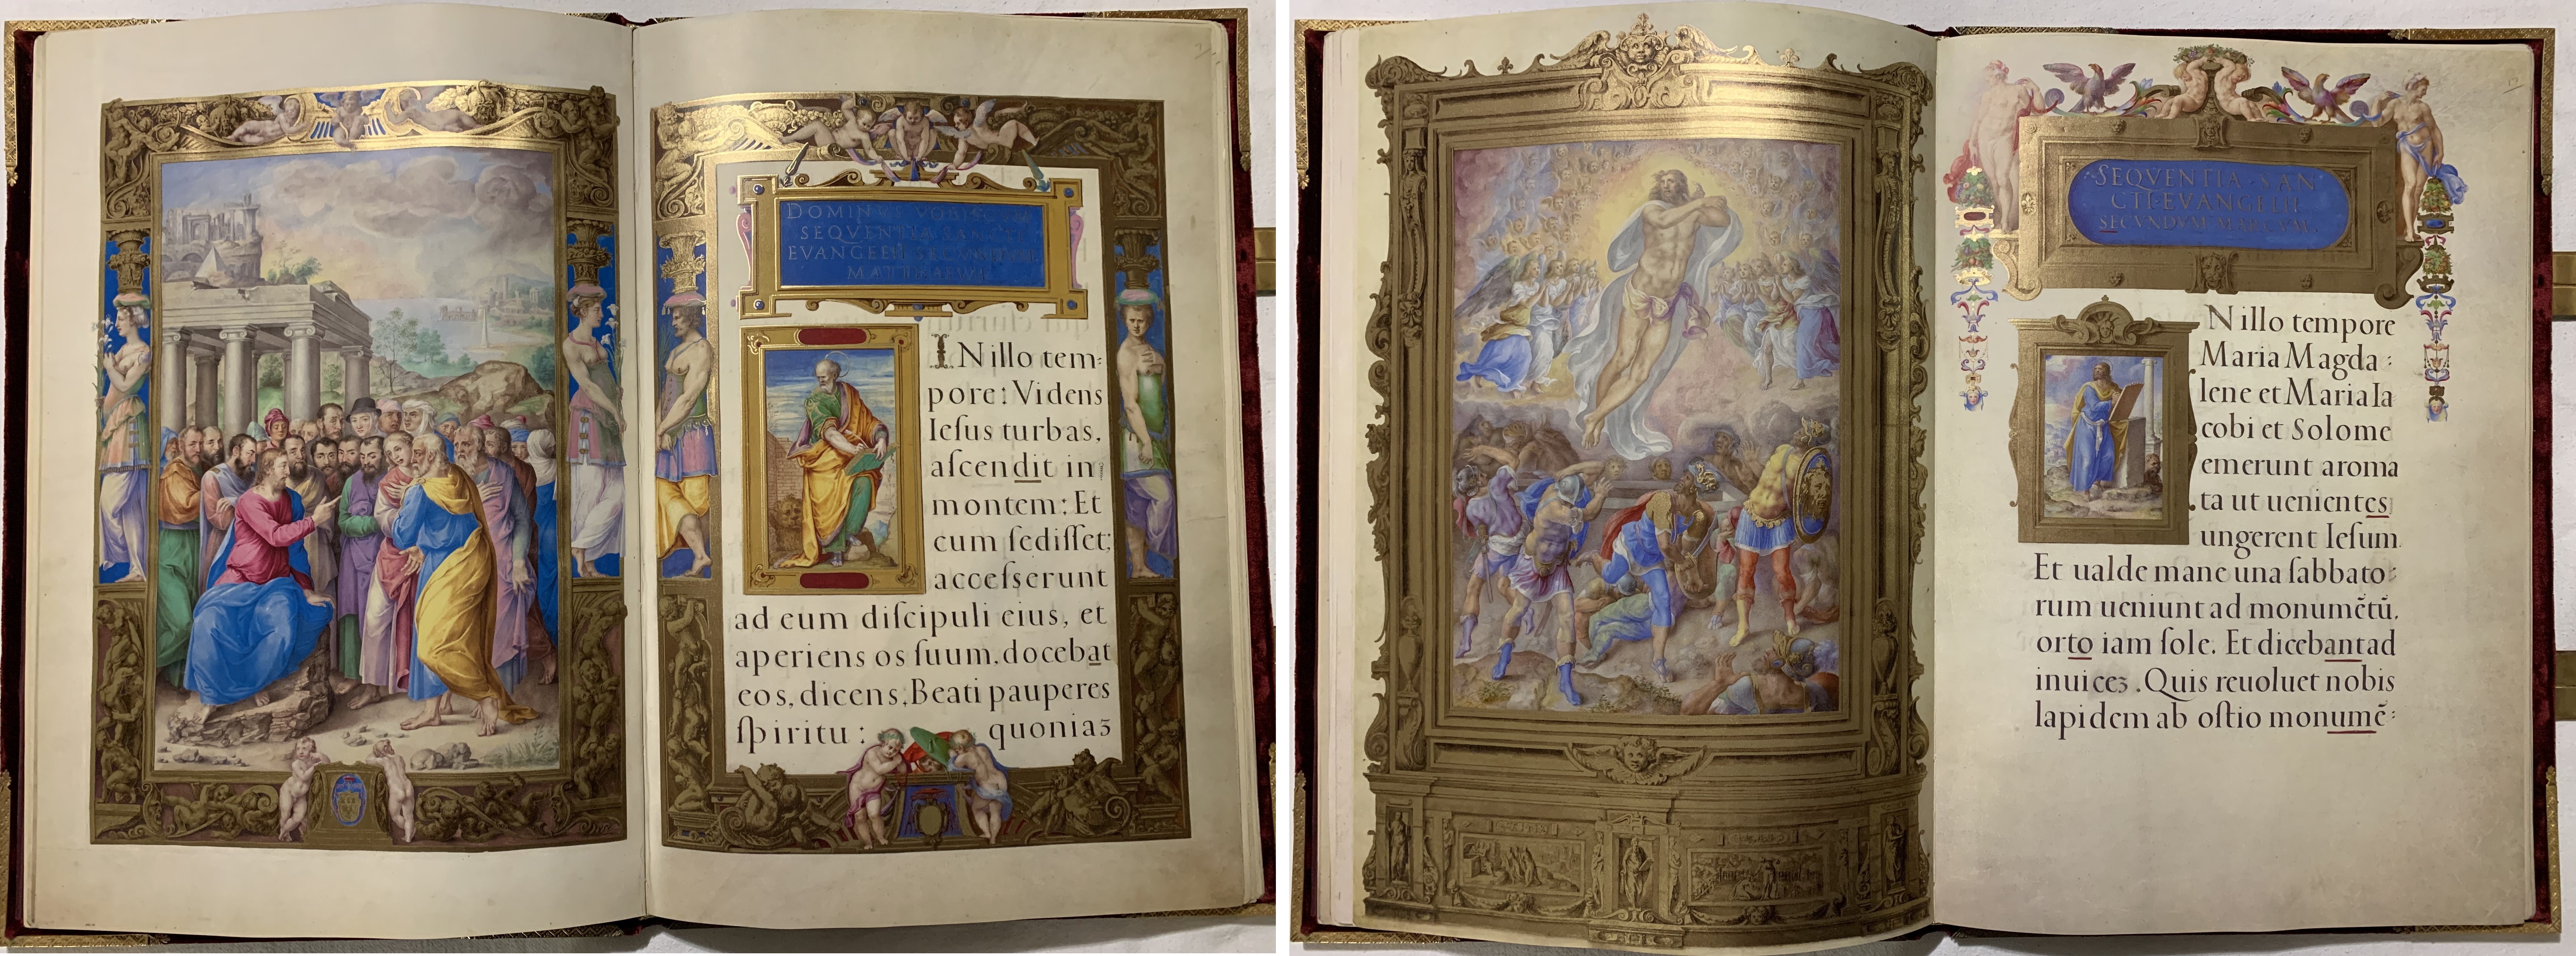 DOMINVS VOBISCVM
SEQVENTIA SANCTI
EVANGELII SECVNDVM
MATTHAEVM
INillo tem:
pore: Videns
Ieſus turbas,
aſcendit in
montem: Et
cum ſediſſet;
acceſserunt
ad eum diſcipuli eius, et
aperiens os ſuum. docebat
eos, dicens, Beati pauperes
ſpiritu: quoniaʒ
SEQVENTIA SAN
CTI EVANGELII
SECVNDVM MARCVM.
Nillo tempore
Maria Magda:
lene et Maria Ia
cobi et Solome
emerunt aroma
ta ut uenientes
ungerent Ieſum.
Et ualde mane una ſabbato:
rum ueniunt ad monumẽtũ.
orto iam ſole. Et dicebant ad
inuiceʒ. Quis reuoluet nobis
lapidem ab oſtio monumẽ: